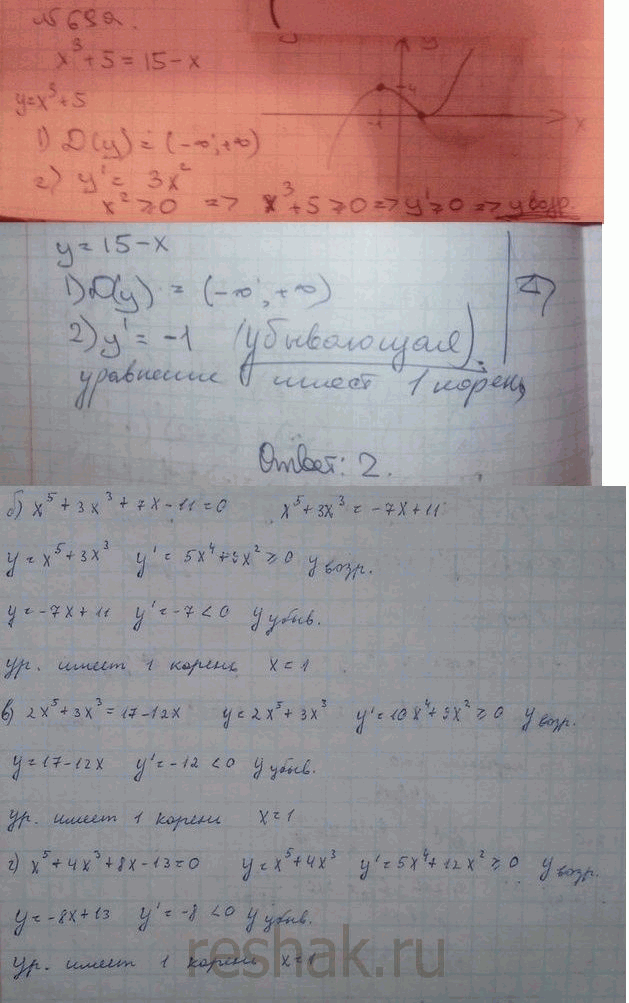 № 692.
x³ + 5 = 15 - x
y = x³ + 5
1) D(y) = (-∞; +∞)
2) y' = 3x²
x² ≥ 0 => x³ + 5 ≥ 0 => y' ≥ 0 => y возр.
y
4
-1
x
y = 15 - x
1) D(y) = (-∞; +∞)
2) y' = -1 (убывающая).
уравнение имеет 1 корень
Ответ: 2.
б) x⁵ + 3x³ + 7x - 11 = 0 x⁵ + 3x³ = -7x + 11
y = x⁵ + 3x³ y' = 5x⁴ + 9x² ≥ 0 y возр.
y = -7x + 11 y' = -7 < 0 y убыв.
ур. имеет 1 корень x = 1
в) 2x⁵ + 3x³ = 17 - 12x y = 2x⁵ + 3x³ y' = 10x⁴ + 9x² ≥ 0 y возр.
y = 17 - 12x y' = -12 < 0 y убыв.
ур. имеет 1 корень x = 1
г) x⁵ + 4x³ + 8x - 13 = 0 y = x⁵ + 4x³ y' = 5x⁴ + 12x² ≥ 0 y возр.
y = -8x + 13 y' = -8 < 0 y убыв.
ур. имеет 1 корень x = 1
reshak.ru